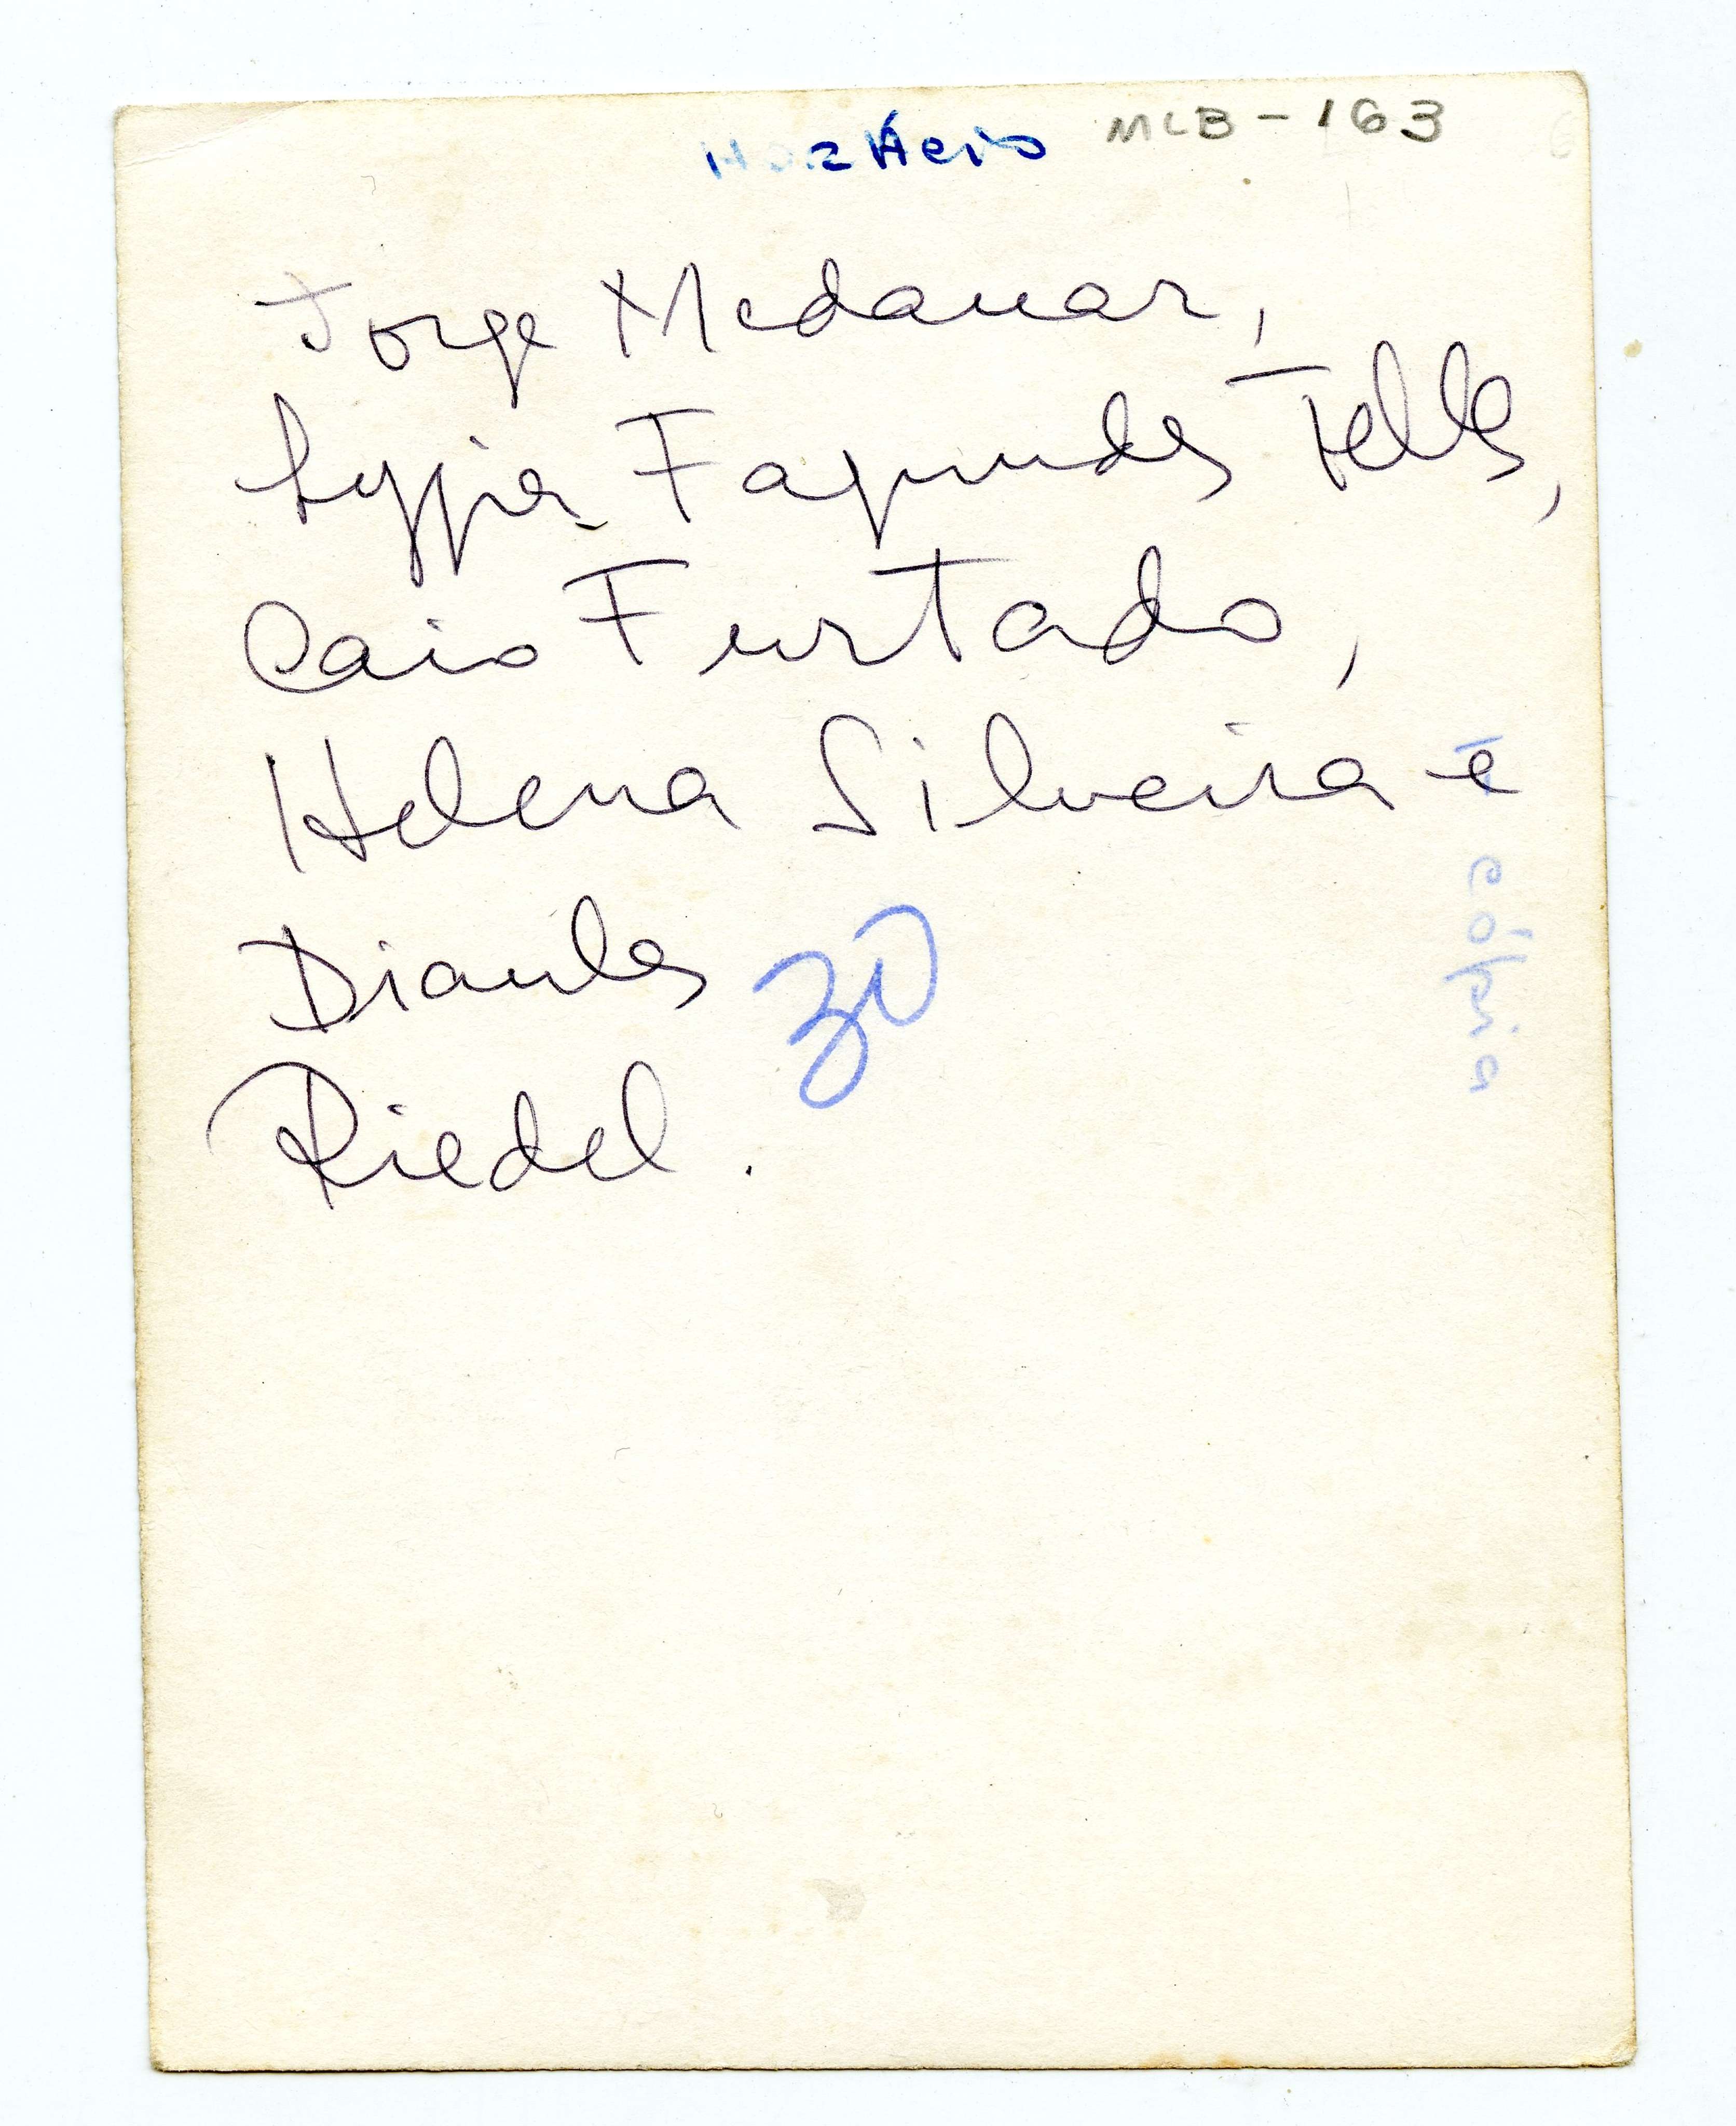 MLB - 163
Jorge Medauar,
Lygia Fagundes Telles,
Caio Furtado,
Helena Silveira e
Diaulas
Riedel.
30
cópia